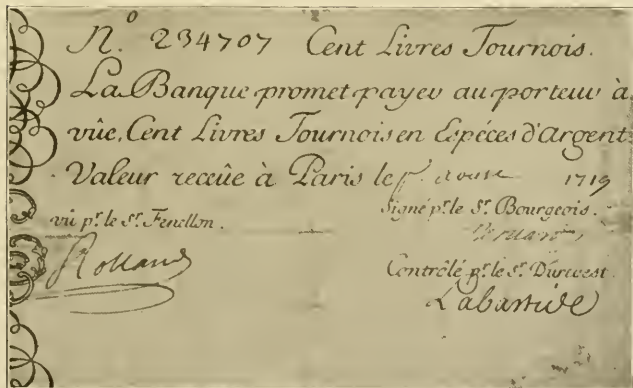 N.º 234707 Cent Livres Tournois.
La Banque promet payer au porteur à
vûe, Cent Livres Tournois en Espéces d'Argent
Valeur receûe à Paris le 1719
vû pr. le Sr. Fenellon.
Signé pr. le Sr. Bourgeois.
Rolland
Contrôlé pr. le Sr. Durevest.
Labastide